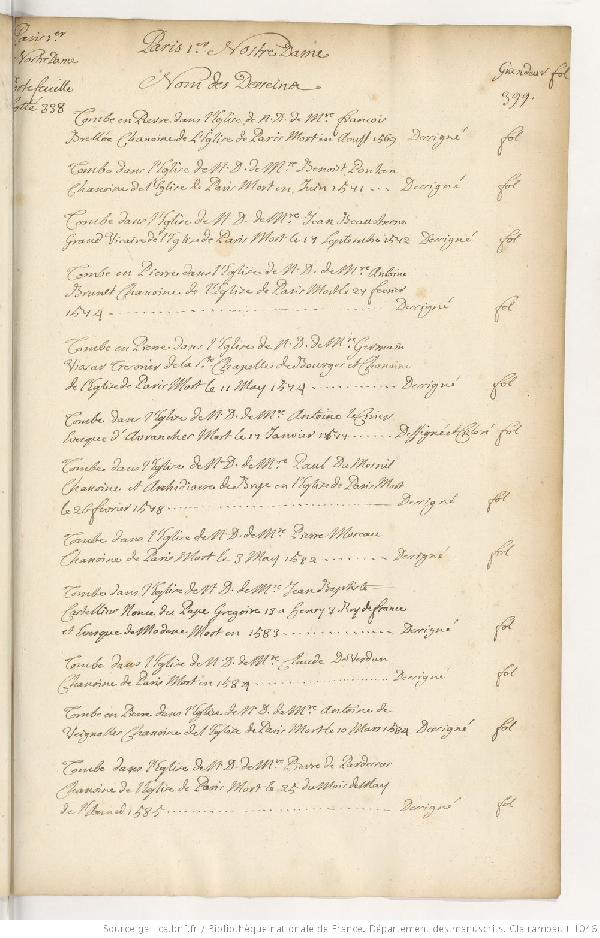 Paris 1er
Nostre Dame
Portefeuille
Cotté 338
Paris 1er Nostre Dame
Nom des Desseins
Grandeur fol
399.
Tombe en Pierre dans l'Eglise de N. D. de Mre francois
Chanoine de L'Eglise de Paris Mort en Aoust Dessigné fol
Tombe dans l'Eglise de N. D. de Mre Benoist
Chanoine de l'Eglise de Paris Mort en Juin 1571 ... Dessigné fol
Tombe dans l'Eglise de N. D. de Mre Jean
Grand Vicaire de l'Eglise de Paris Mort le 17 Septembre 1572 Dessigné fol
Tombe en Pierre dans l'Eglise de N. D. de Mre Antoine
Brunet Chanoine de l'Eglise de Paris Mort le 27 fevrier
1574 ........ Dessigné fol
Tombe en Pierre dans l'Eglise de N. D. de Mre Germain
Tresorier de la Ste Chapelle de Bourges et Chanoine
de l'Eglise de Paris Mort le 11 May 1574 .......... Dessigné fol
Tombe dans l'Eglise de N. D. de Mre Antoine
Evesque d'Avranches Mort le 17 Janvier ...... Dessigné et Coloré fol
Tombe dans l'Eglise de N. D. de Mre Paul Du Mesnil
Chanoine et Archidiacre de Brye en l'Eglise de Paris Mort
le 26 fevrier 1578 ........ Dessigné fol
Tombe dans l'Eglise de N. D. de Mre Pierre Moreau
Chanoine de Paris Mort le 3 May 1582 ........ Dessigné fol
Tombe dans l'Eglise de N. D. de Mre Jean Baptiste
Castellin Nonce du Pape Gregoire 13 a Henry 3 Roy de france
et Evesque de Modene Mort en 1583 .......... Dessigné fol
Tombe dans l'Eglise de N. D. de Mre Claude De Verdun
Chanoine de Paris Mort en 1584 .......... Dessigné fol
Tombe en Pierre dans l'Eglise de N. D. de Mre Antoine de
Veignolles Chanoine de l'Eglise de Paris Mort le 10 Mars 1584 Dessigné fol
Tombe dans l'Eglise de N. D. de Mre Pierre de
Chanoine de l'Eglise de Paris Mort le 25 du Mois de May
de l'Année 1585 .......... Dessigné fol
Source gallica.bnf.fr / Bibliothèque nationale de France. Département des manuscrits. Clairambault 1046